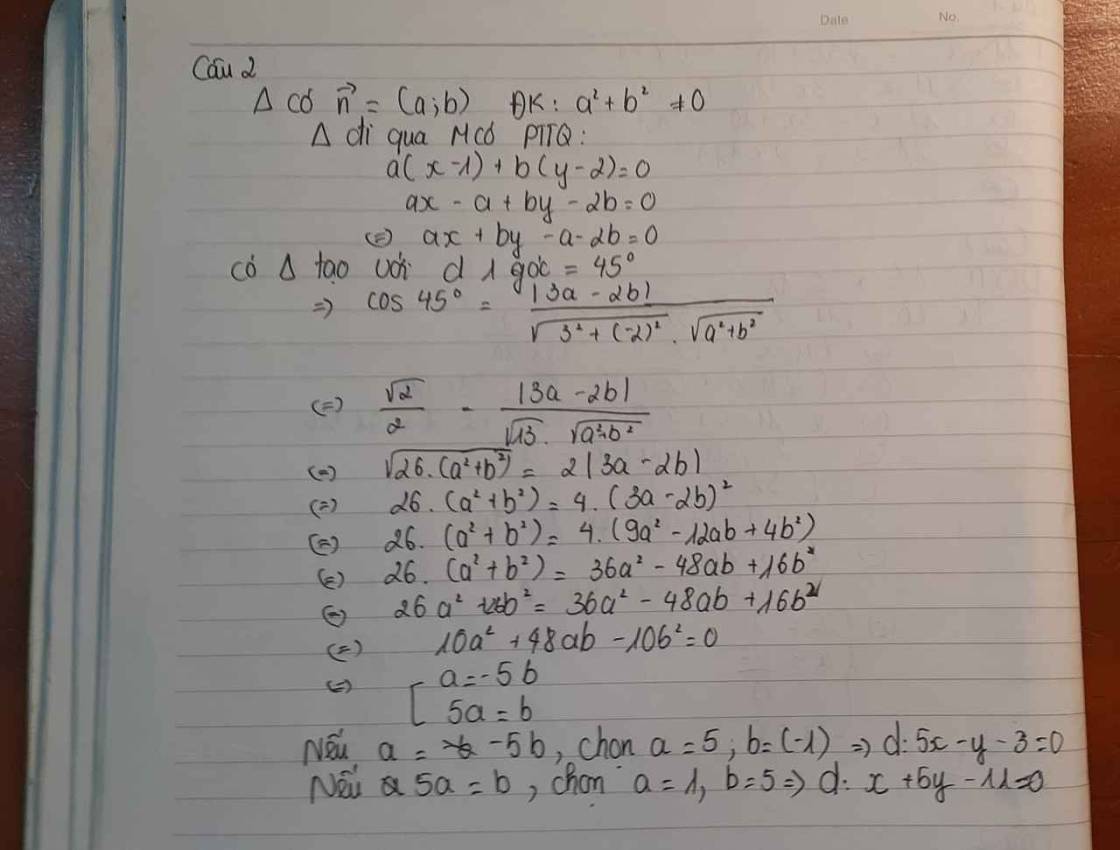 Date No.
Câu 2
Δ có n⃗ = (a;b) ĐK: a² + b² ≠ 0
Δ đi qua M có PTTQ:
a(x-1) + b(y-2) = 0
ax - a + by - 2b = 0
(=) ax + by - a - 2b = 0
có Δ tạo với d 1 góc = 45°
=> cos 45° = |3a - 2b| / √3² + (-2)² . √a² + b²
(=) √2 / 2 = |3a - 2b| / √13 . √a² + b²
(=) √26.(a² + b²) = 2|3a - 2b|
(=) 26.(a² + b²) = 4.(3a - 2b)²
(=) 26.(a² + b²) = 4.(9a² - 12ab + 4b²)
(=) 26.(a² + b²) = 36a² - 48ab + 16b²
(=) 26a² + 26b² = 36a² - 48ab + 16b²
(=) 10a² + 48ab - 10b² = 0
(=) [ a = -5b
5a = b
Nếu a = -5b, chọn a = 5; b = (-1) => d: 5x - y - 3 = 0
Nếu 5a = b, chọn a = 1, b = 5 => d: x + 5y - 11 = 0